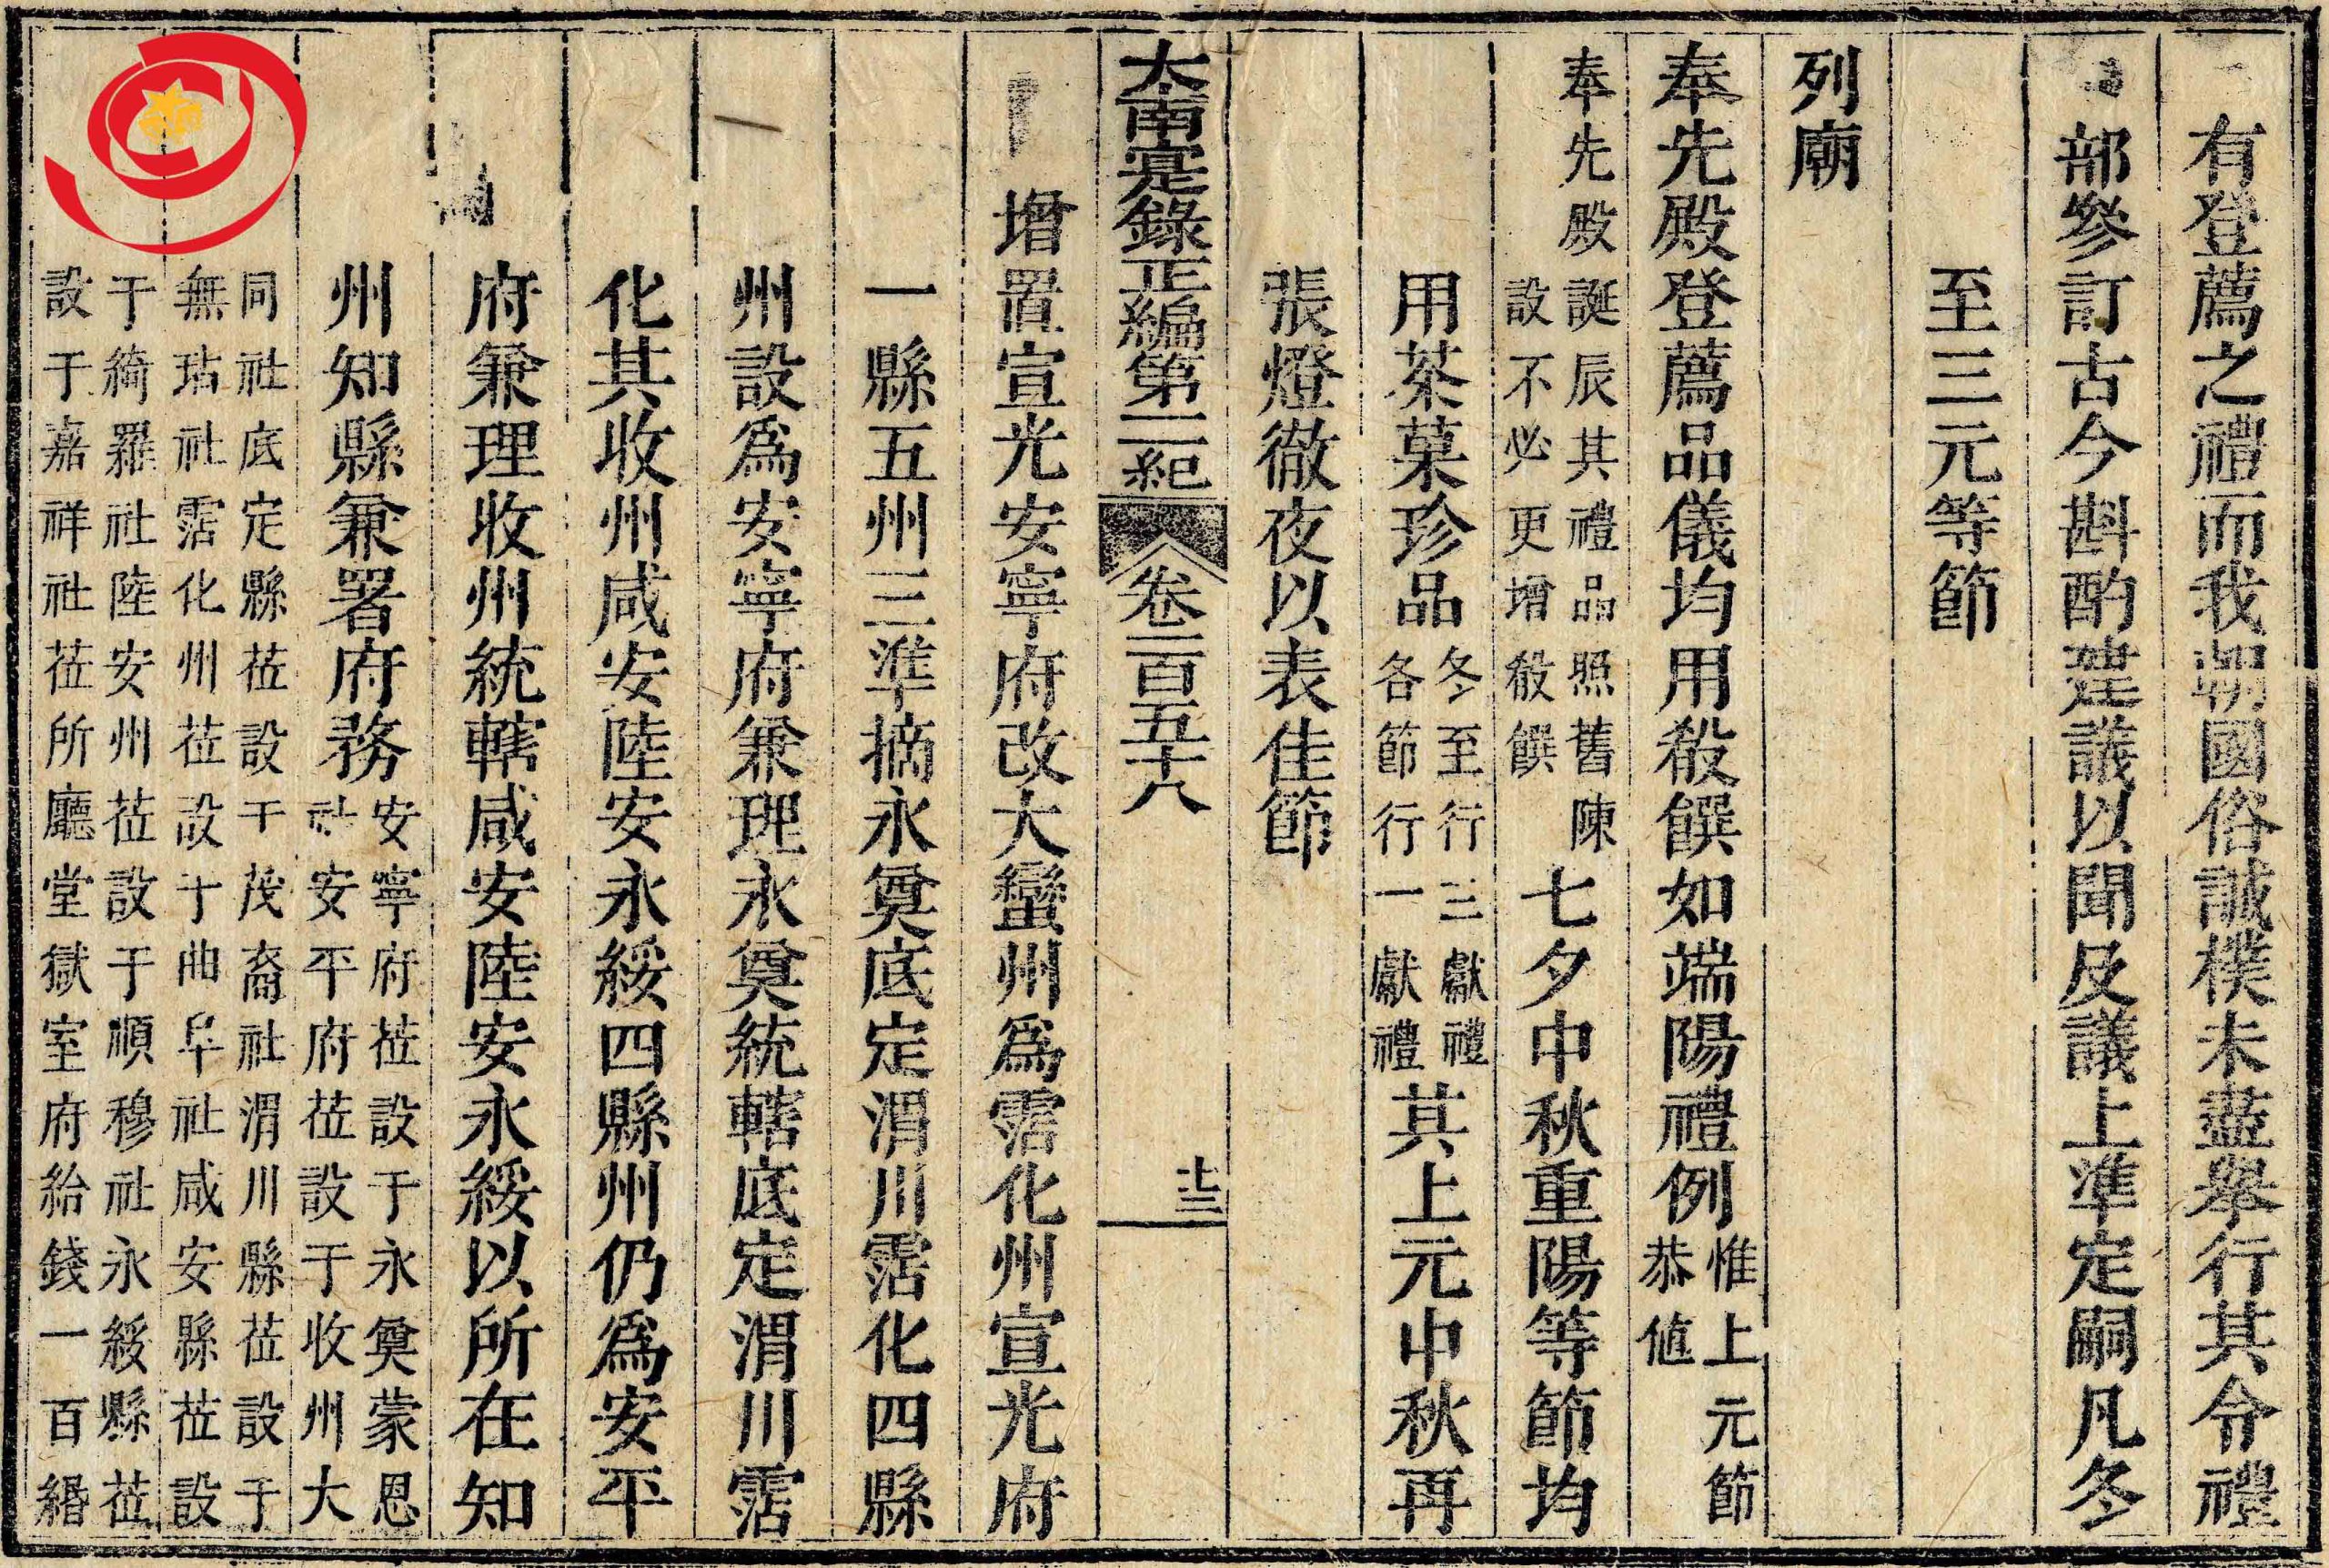 有登薦之禮而我朝國俗誠樸未盡舉行其令禮
部參訂古今斟酌建議以聞及議上準定嗣凡冬
至三元等節
列廟
奉先殿登薦品儀均用殽饌如端陽禮例惟上元節恭値
奉先殿誕辰其禮品照舊陳設不必更增殽饌七夕中秋重陽等節均
用茶菓珍品冬至行三獻禮各節行一獻禮其上元中秋再
張燈徹夜以表佳節
大南寔錄正編第二紀 卷二百五十八 十三
增置宣光安寧府改大蠻州爲霑化州宣光府
一縣五州三準摘永奠底定渭川霑化四縣
州設爲安寧府兼理永奠統轄底定渭川霑
化其收州咸安陸安永綏四縣州仍爲安平
府兼理收州統轄咸安陸安永綏以所在知
州知縣兼署府務安寧府莅設于永奠蒙恩社安平府莅設于收州大
同社底定縣莅設于茂裔社渭川縣莅設于無玷社霑化州莅設于曲阜社咸安縣莅設
于綺羅社陸安州莅設于順穆社永綏縣莅設于嘉祥社莅所廳堂獄室府給錢一百緡